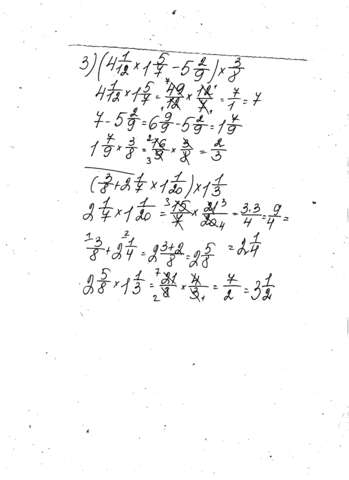 3) (4 1/12 × 1 5/7 − 5 2/9) × 3/8
4 1/12 × 1 5/7 = 49/12 × 12/7 = 7/1 = 7
7 − 5 2/9 = 6 9/9 − 5 2/9 = 1 7/9
1 7/9 × 3/8 = 16/9 × 3/8 = 2/3
(3/8 + 2 1/7 × 1 1/20) × 1 1/3
2 1/7 × 1 1/20 = 15/7 × 21/20 = 3·3/4 = 9/4 =
= 2 1/4
3/8 + 2 1/4 = 2 3+2/8 = 2 5/8
2 5/8 × 1 1/3 = 21/8 × 4/3 = 7/2 = 3 1/2